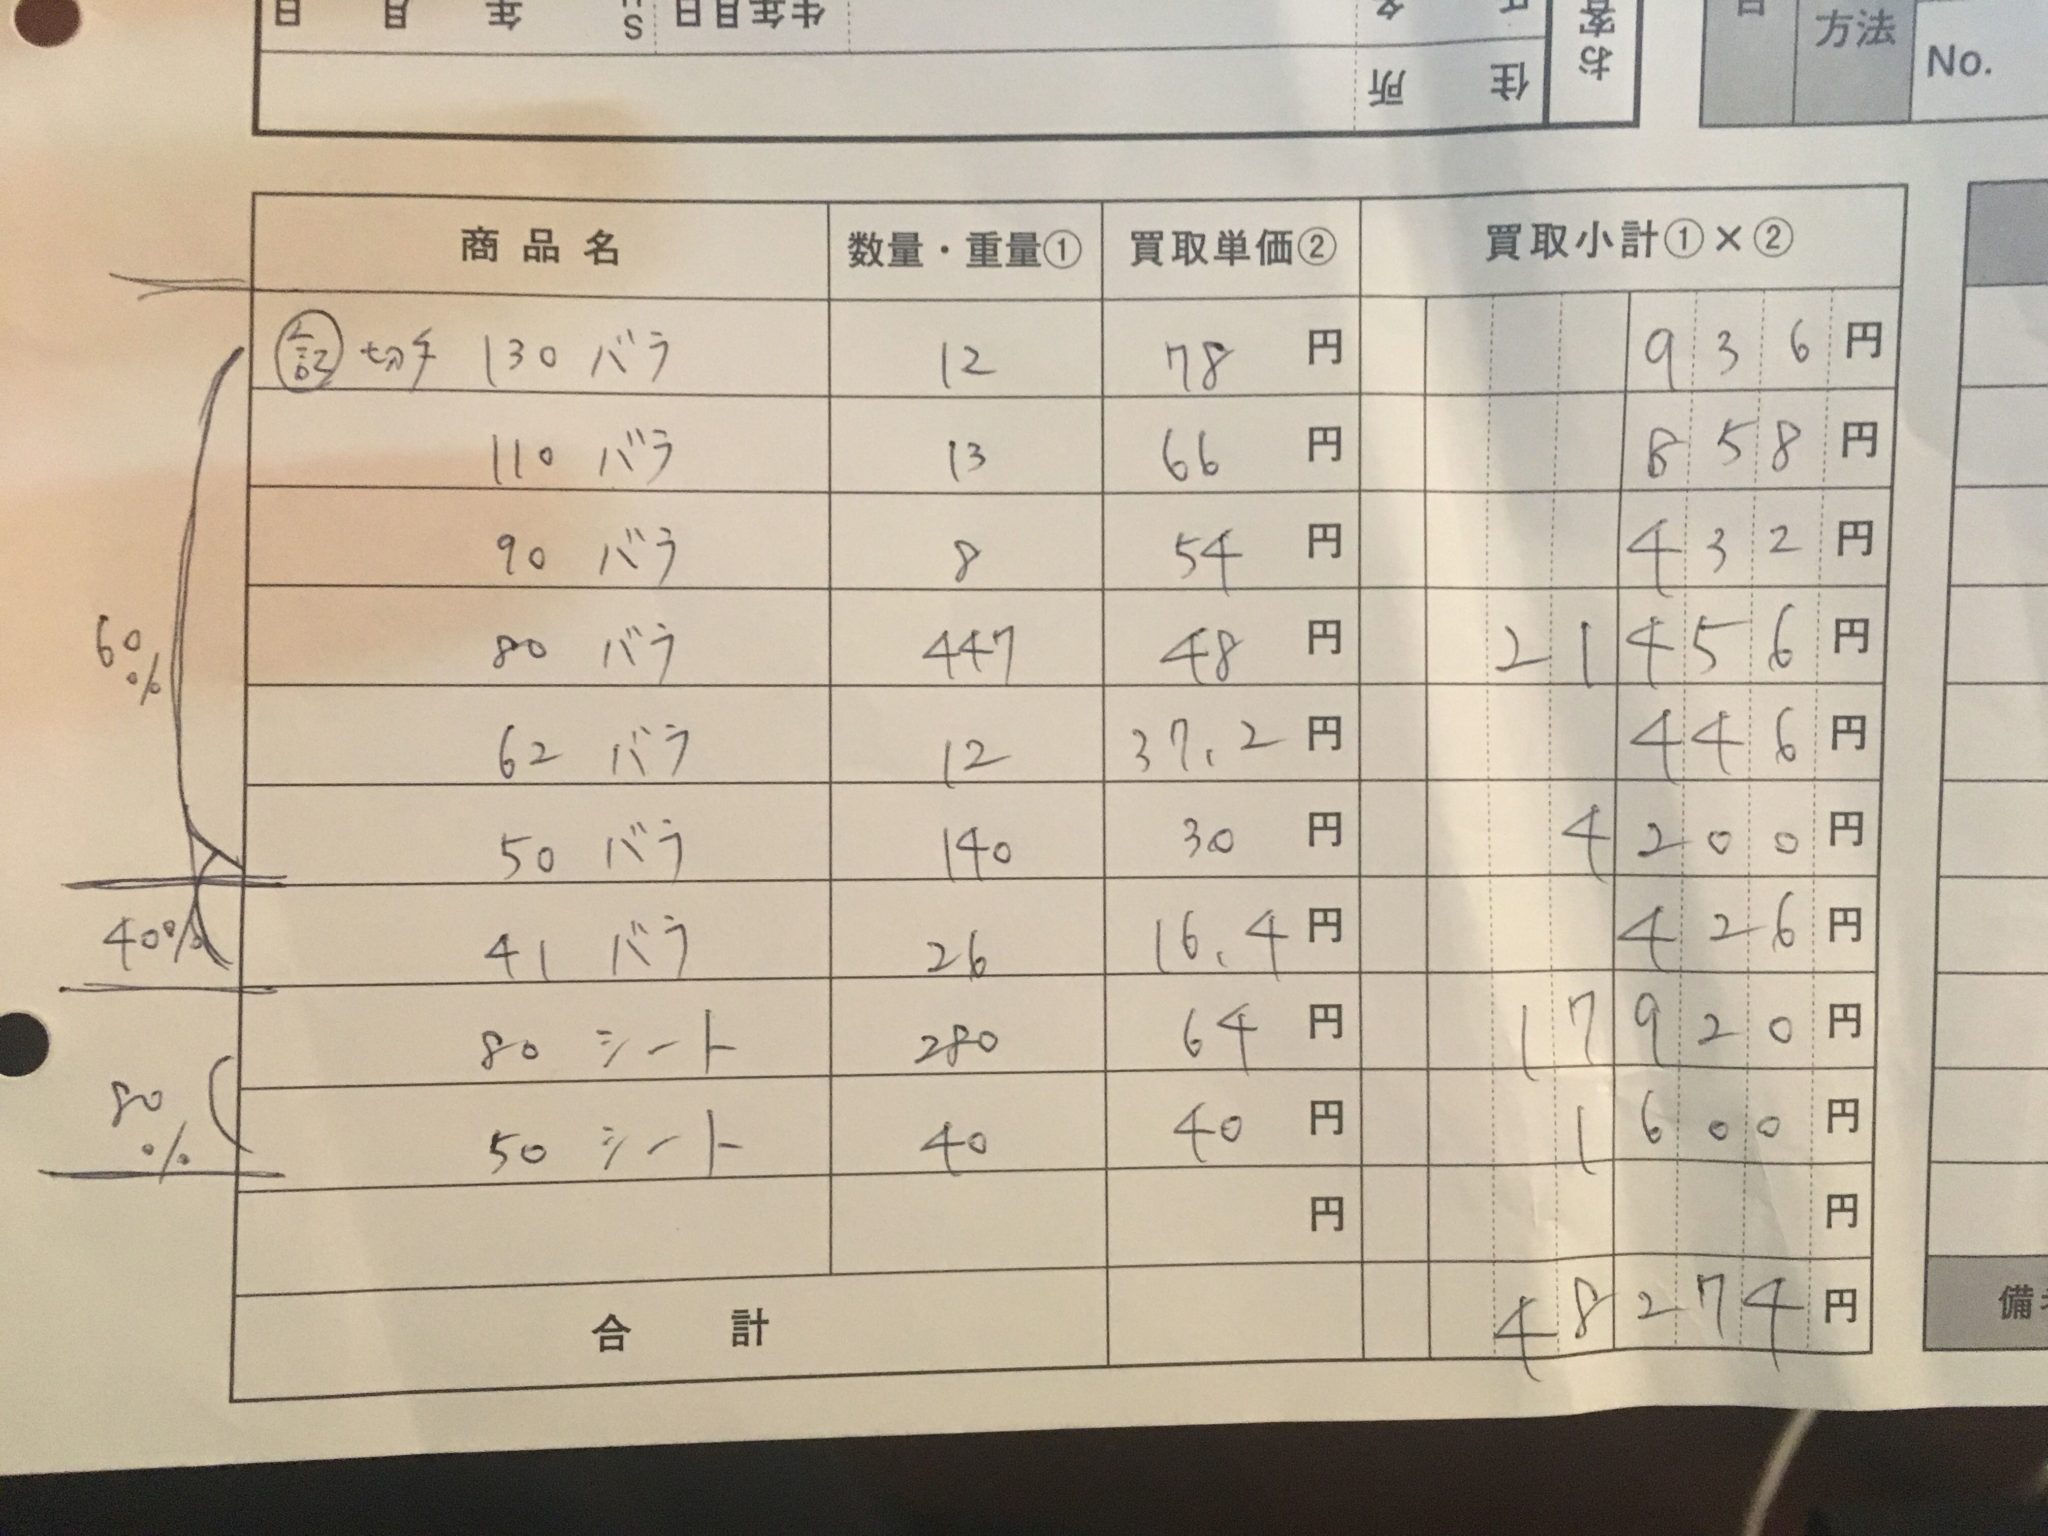 日 月 年 S 生年月日
住所
お客
方法
No.
商品名 数量・重量① 買取単価② 買取小計①×②
記 切手 130 バラ 12 78 円 936 円
110 バラ 13 66 円 858 円
90 バラ 8 54 円 432 円
60% 80 バラ 447 48 円 21456 円
62 バラ 12 37.2 円 446 円
50 バラ 140 30 円 4200 円
40% 41 バラ 26 16.4 円 426 円
80 シート 280 64 円 17920 円
80% 50 シート 40 40 円 1600 円
円 円
合計 48274 円
備